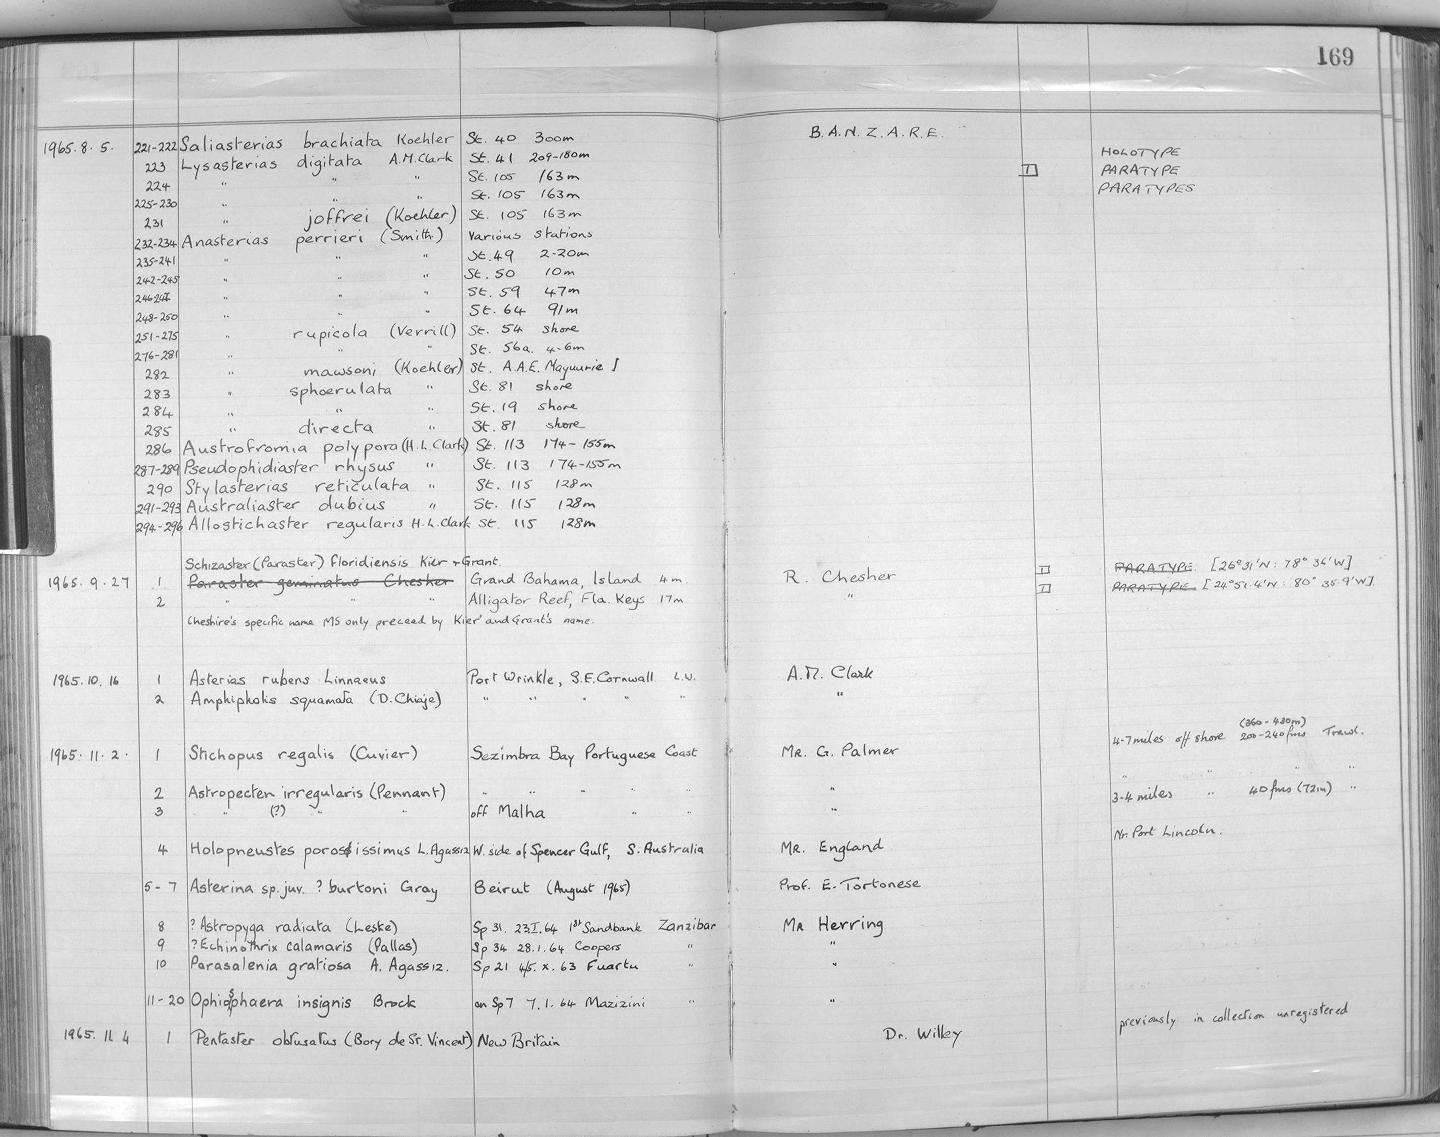 169
1965.8.5. 221-222 Saliasterias brachiata Koehler St. 40 300m B.A.N.Z.A.R.E.
223 Lysasterias digitata A.M.Clark St. 41 209-180m HOLOTYPE
224 " " " St. 105 163m T PARATYPE
225-230 " " " St. 105 163m PARATYPES
231 " joffrei (Koehler) St. 105 163m
232-234 Anasterias perrieri (Smith) Various stations
235-241 " " " St. 49 2-20m
242-245 " " " St. 50 10m
246-247 " " " St. 59 47m
248-250 " " " St. 64 91m
251-275 " rupicola (Verrill) St. 54 shore
276-281 " " " St. 56a. 4-6m
282 " mawsoni (Koehler) St. A.A.E.
283 " sphoerulata " St. 81 shore
284 " " " St. 19 shore
285 " directa " St. 81 shore
286 Austrofromia polypora (H.L.Clark) St. 113 174-155m
287-289 Pseudophidiaster rhysus " St. 113 174-155m
290 Stylasterias reticulata " St. 115 128m
291-293 Australiaster dubius " St. 115 128m
294-296 Allostichaster regularis H.L.Clark St. 115 128m
Schizaster (Paraster) floridiensis Kier & Grant.
1965.9.27 1 Paraster geminatus Chesher Grand Bahama, Island 4m. R. Chesher PARATYPE [26°31'N : 78° 36'W]
2 " " " Alligator Reef, Fla. Keys 17m " PARATYPE [24°51.4'N : 80° 35.9'W]
Cheshire's specific name MS only preceed by Kier' and Grant's name.
1965.10.16 1 Asterias rubens Linnaeus Port Wrinkle, S.E. Cornwall L.W. A.M. Clark
2 Amphipholis squamata (D.Chiaje) " " " " " "
(360-430m)
1965.11.2. 1 Stichopus regalis (Cuvier) Sezimbra Bay Portuguese Coast Mr. G. Palmer 4-7 miles off shore 200-240fms Trawl.
2 Astropecten irregularis (Pennant) " " " " " " " " "
3 " (?) " off Malha " " " 3-4 miles " 40fms (72m) "
4 Holopneustes porosissimus L.Agassiz W. side of Spencer Gulf, S. Australia Mr. England Nr. Port Lincoln.
5-7 Asterina sp. juv. ? burtoni Gray Beirut (August 1965) Prof. E. Tortonese
8 ? Astropyga radiata (Leske) Sp 31. 23.I.64 1st Sandbank Zanzibar Mr Herring
9 ? Echinothrix calamaris (Pallas) Sp 34 28.1.64 Coopers " "
10 Parasalenia gratiosa A. Agassiz. Sp 21 4/5.x.63 Fuartu " "
11-20 Ophiosphaera insignis Brock on Sp 7 7.1.64 Mazizini " "
1965.11.4 1 Pentaster obtusatus (Bory de St. Vincent) New Britain Dr. Willey previously in collection unregistered